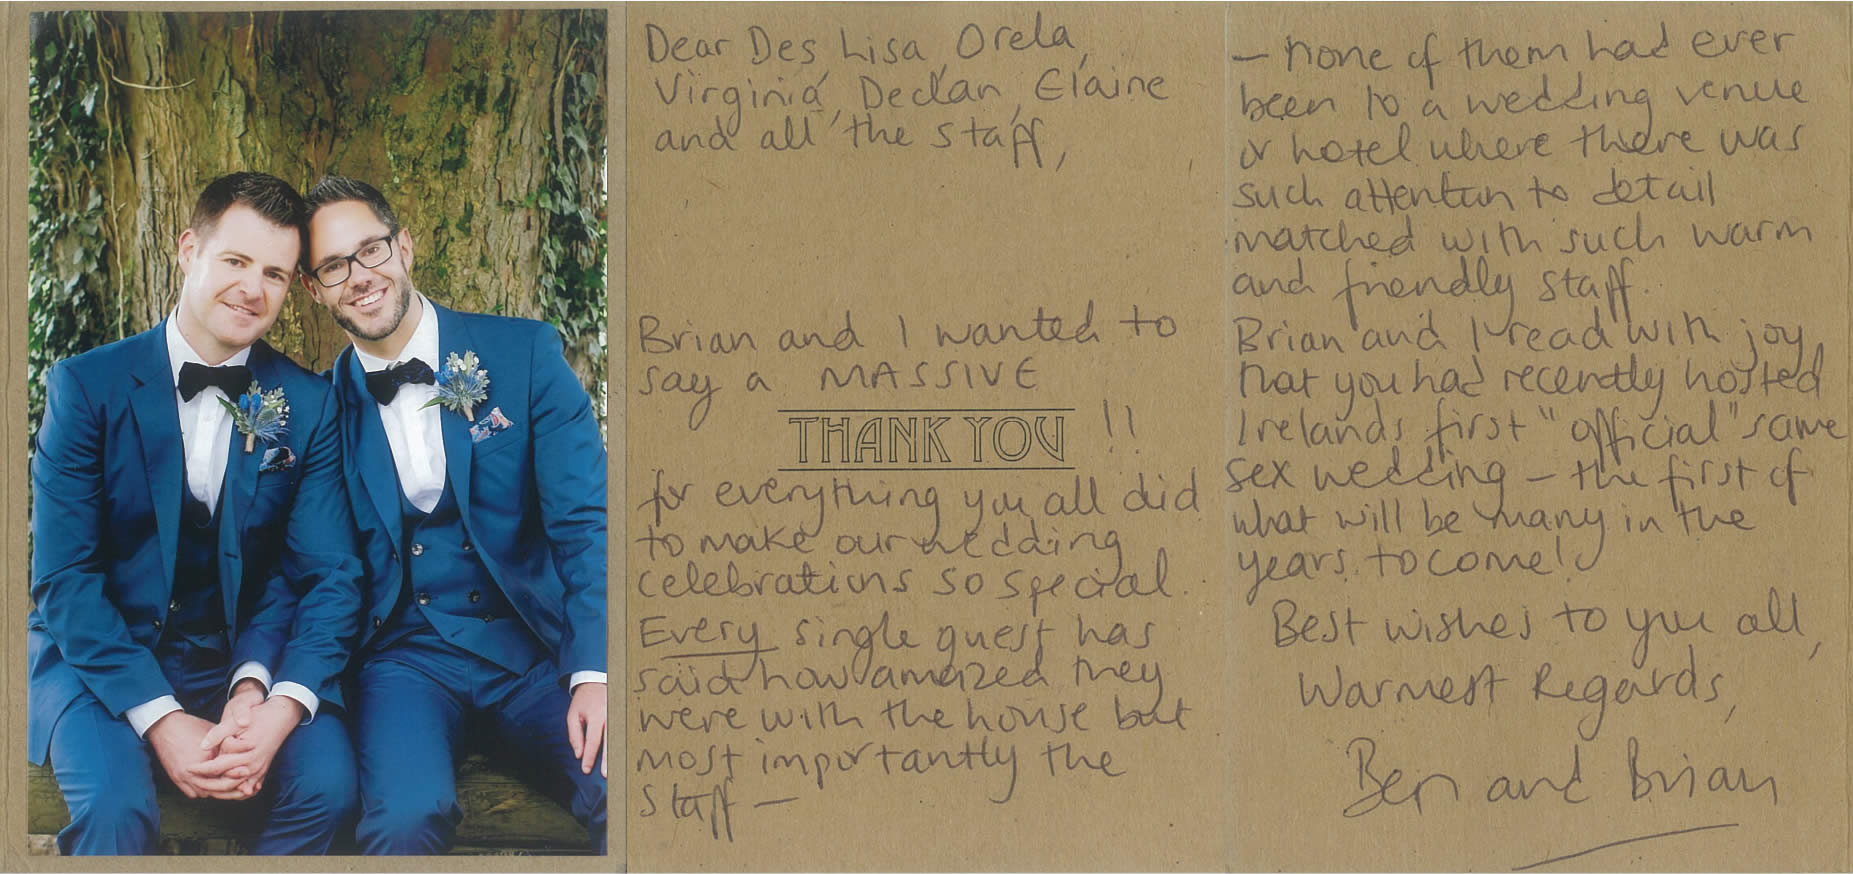 Dear Des, Lisa, Orela,
Virginia, Declan, Elaine
and all the staff,
Brian and I wanted to
say a MASSIVE
THANK YOU !!
for everything you all did
to make our wedding
celebrations so special.
Every single guest has
said how amazed they
were with the house but
most importantly the
staff —
— none of them had ever
been to a wedding venue
or hotel where there was
such attention to detail
matched with such warm
and friendly staff.
Brian and I read with joy
that you had recently hosted
Irelands first "official" same
sex wedding — the first of
what will be many in the
years to come!
Best wishes to you all,
Warmest Regards,
Ben and Brian